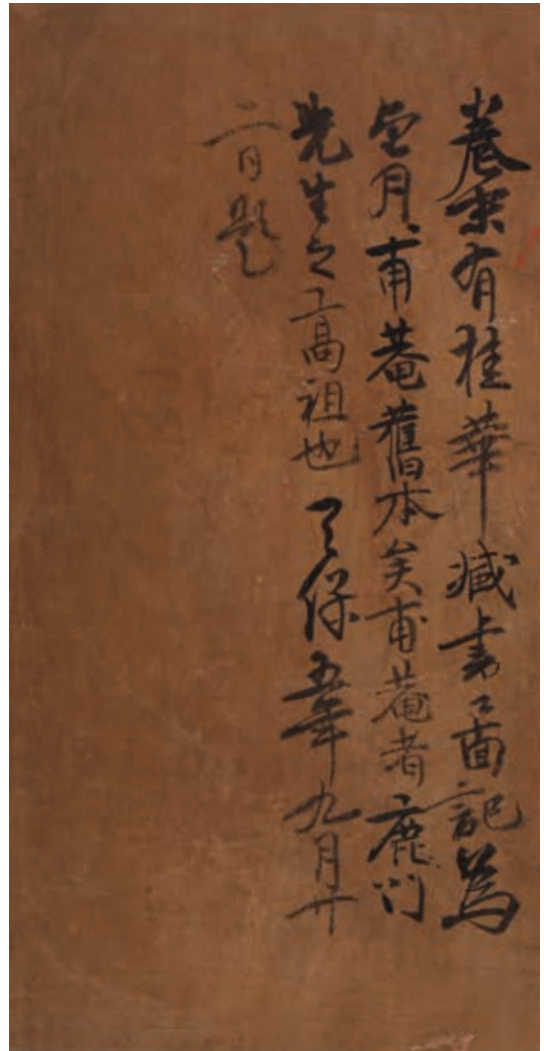 卷有桂華藏書面記為
望月甫菴舊本矣甫菴者鹿門
先生之高祖也 天保五年九月廿
二日題